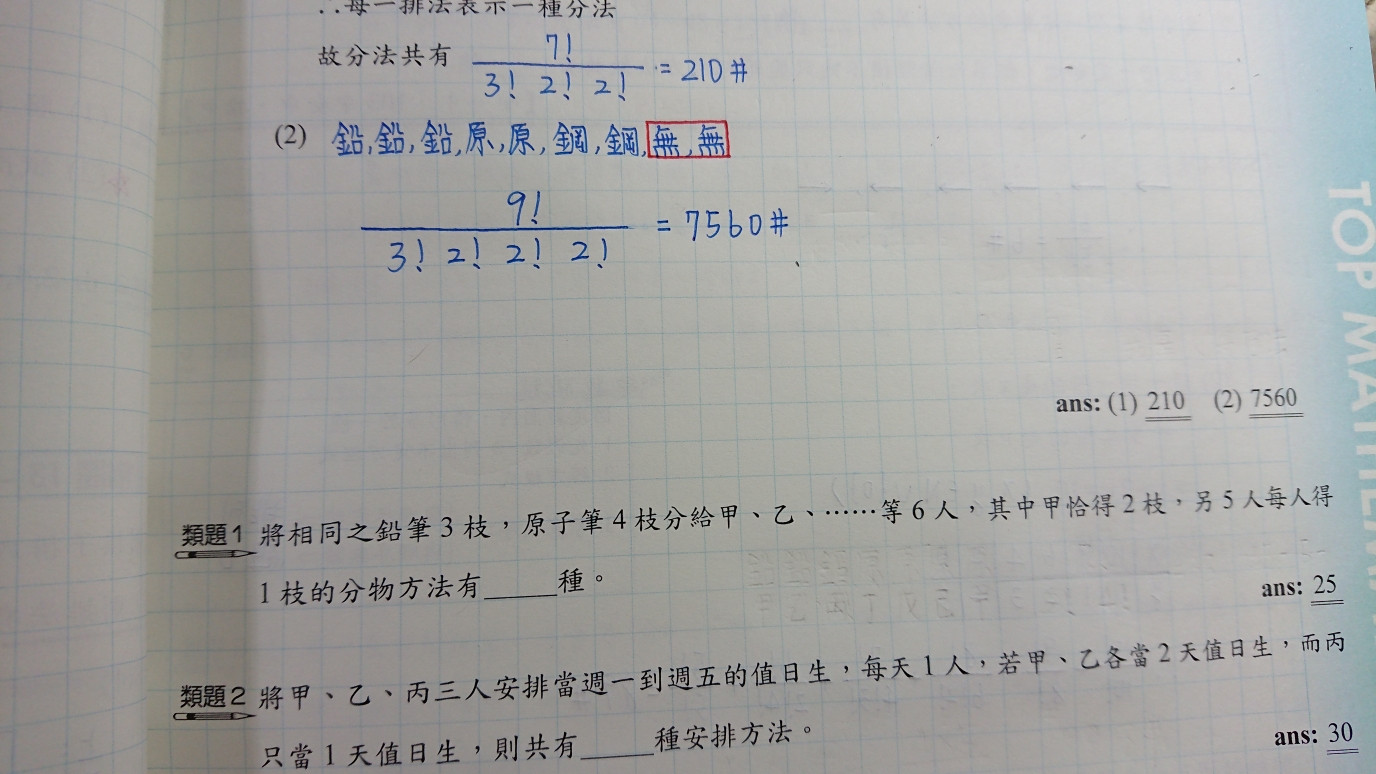 ∴每一排法表示一種分法
故分法共有 7!/(3! 2! 2!) = 210#
(2) 鉛,鉛,鉛,原,原,鋼,鋼,無,無
9!/(3! 2! 2! 2!) = 7560#
ans: (1) 210 (2) 7560
類題1 將相同之鉛筆3枝,原子筆4枝分給甲、乙、……等6人,其中甲恰得2枝,另5人每人得
1枝的分物方法有_____種。
ans: 25
類題2 將甲、乙、丙三人安排當週一到週五的值日生,每天1人,若甲、乙各當2天值日生,而丙
只當1天值日生,則共有_____種安排方法。
ans: 30
TOP MATHEM